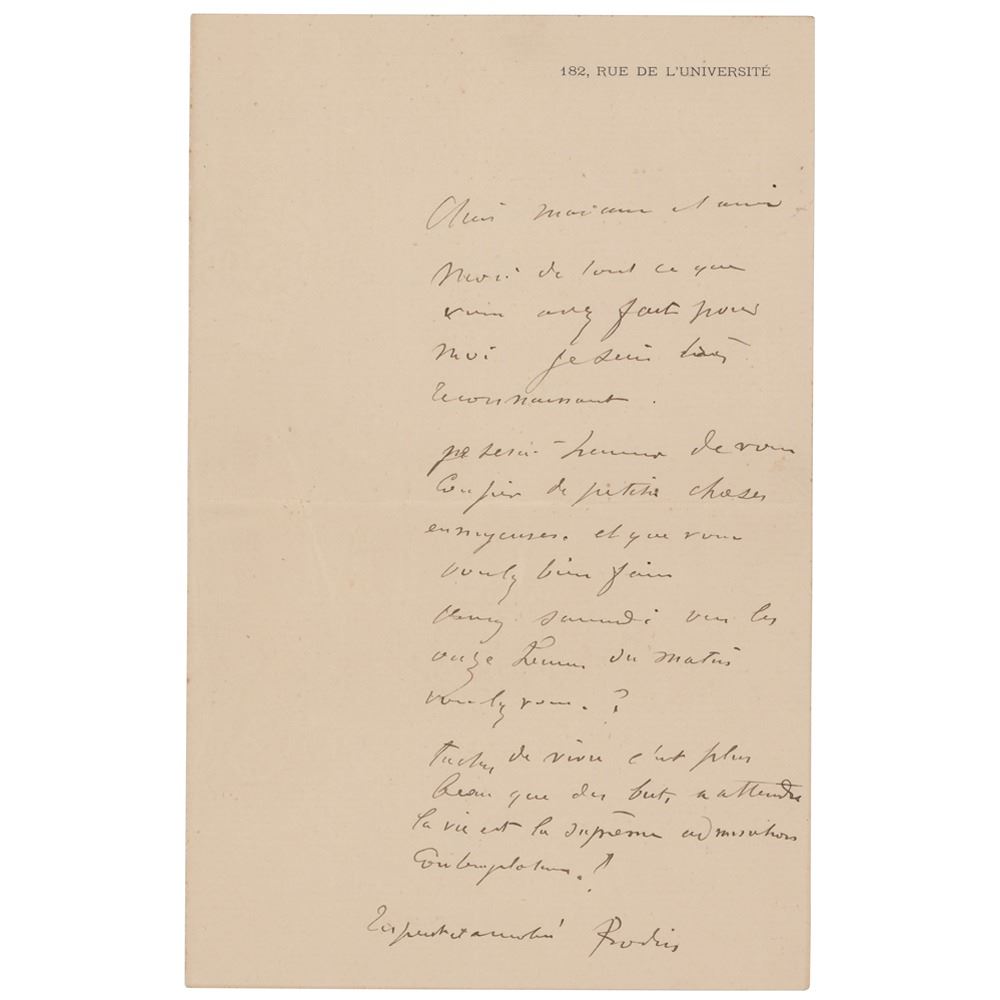 182, RUE DE L'UNIVERSITÉ
Chère madame et amie
Merci de tout ce que
vous avez fait pour
moi je suis très
reconnaissant.
heureux de vous
confier de petites choses
ennuyeuses. et que vous
voulez bien faire
venez samedi vers les
onze heures du matin
voulez vous. ?
tachez de vivre c'est plus
beau que des buts a attendre
la vie est la suprême admiration
contemplation. !
Respect et amitié Rodin